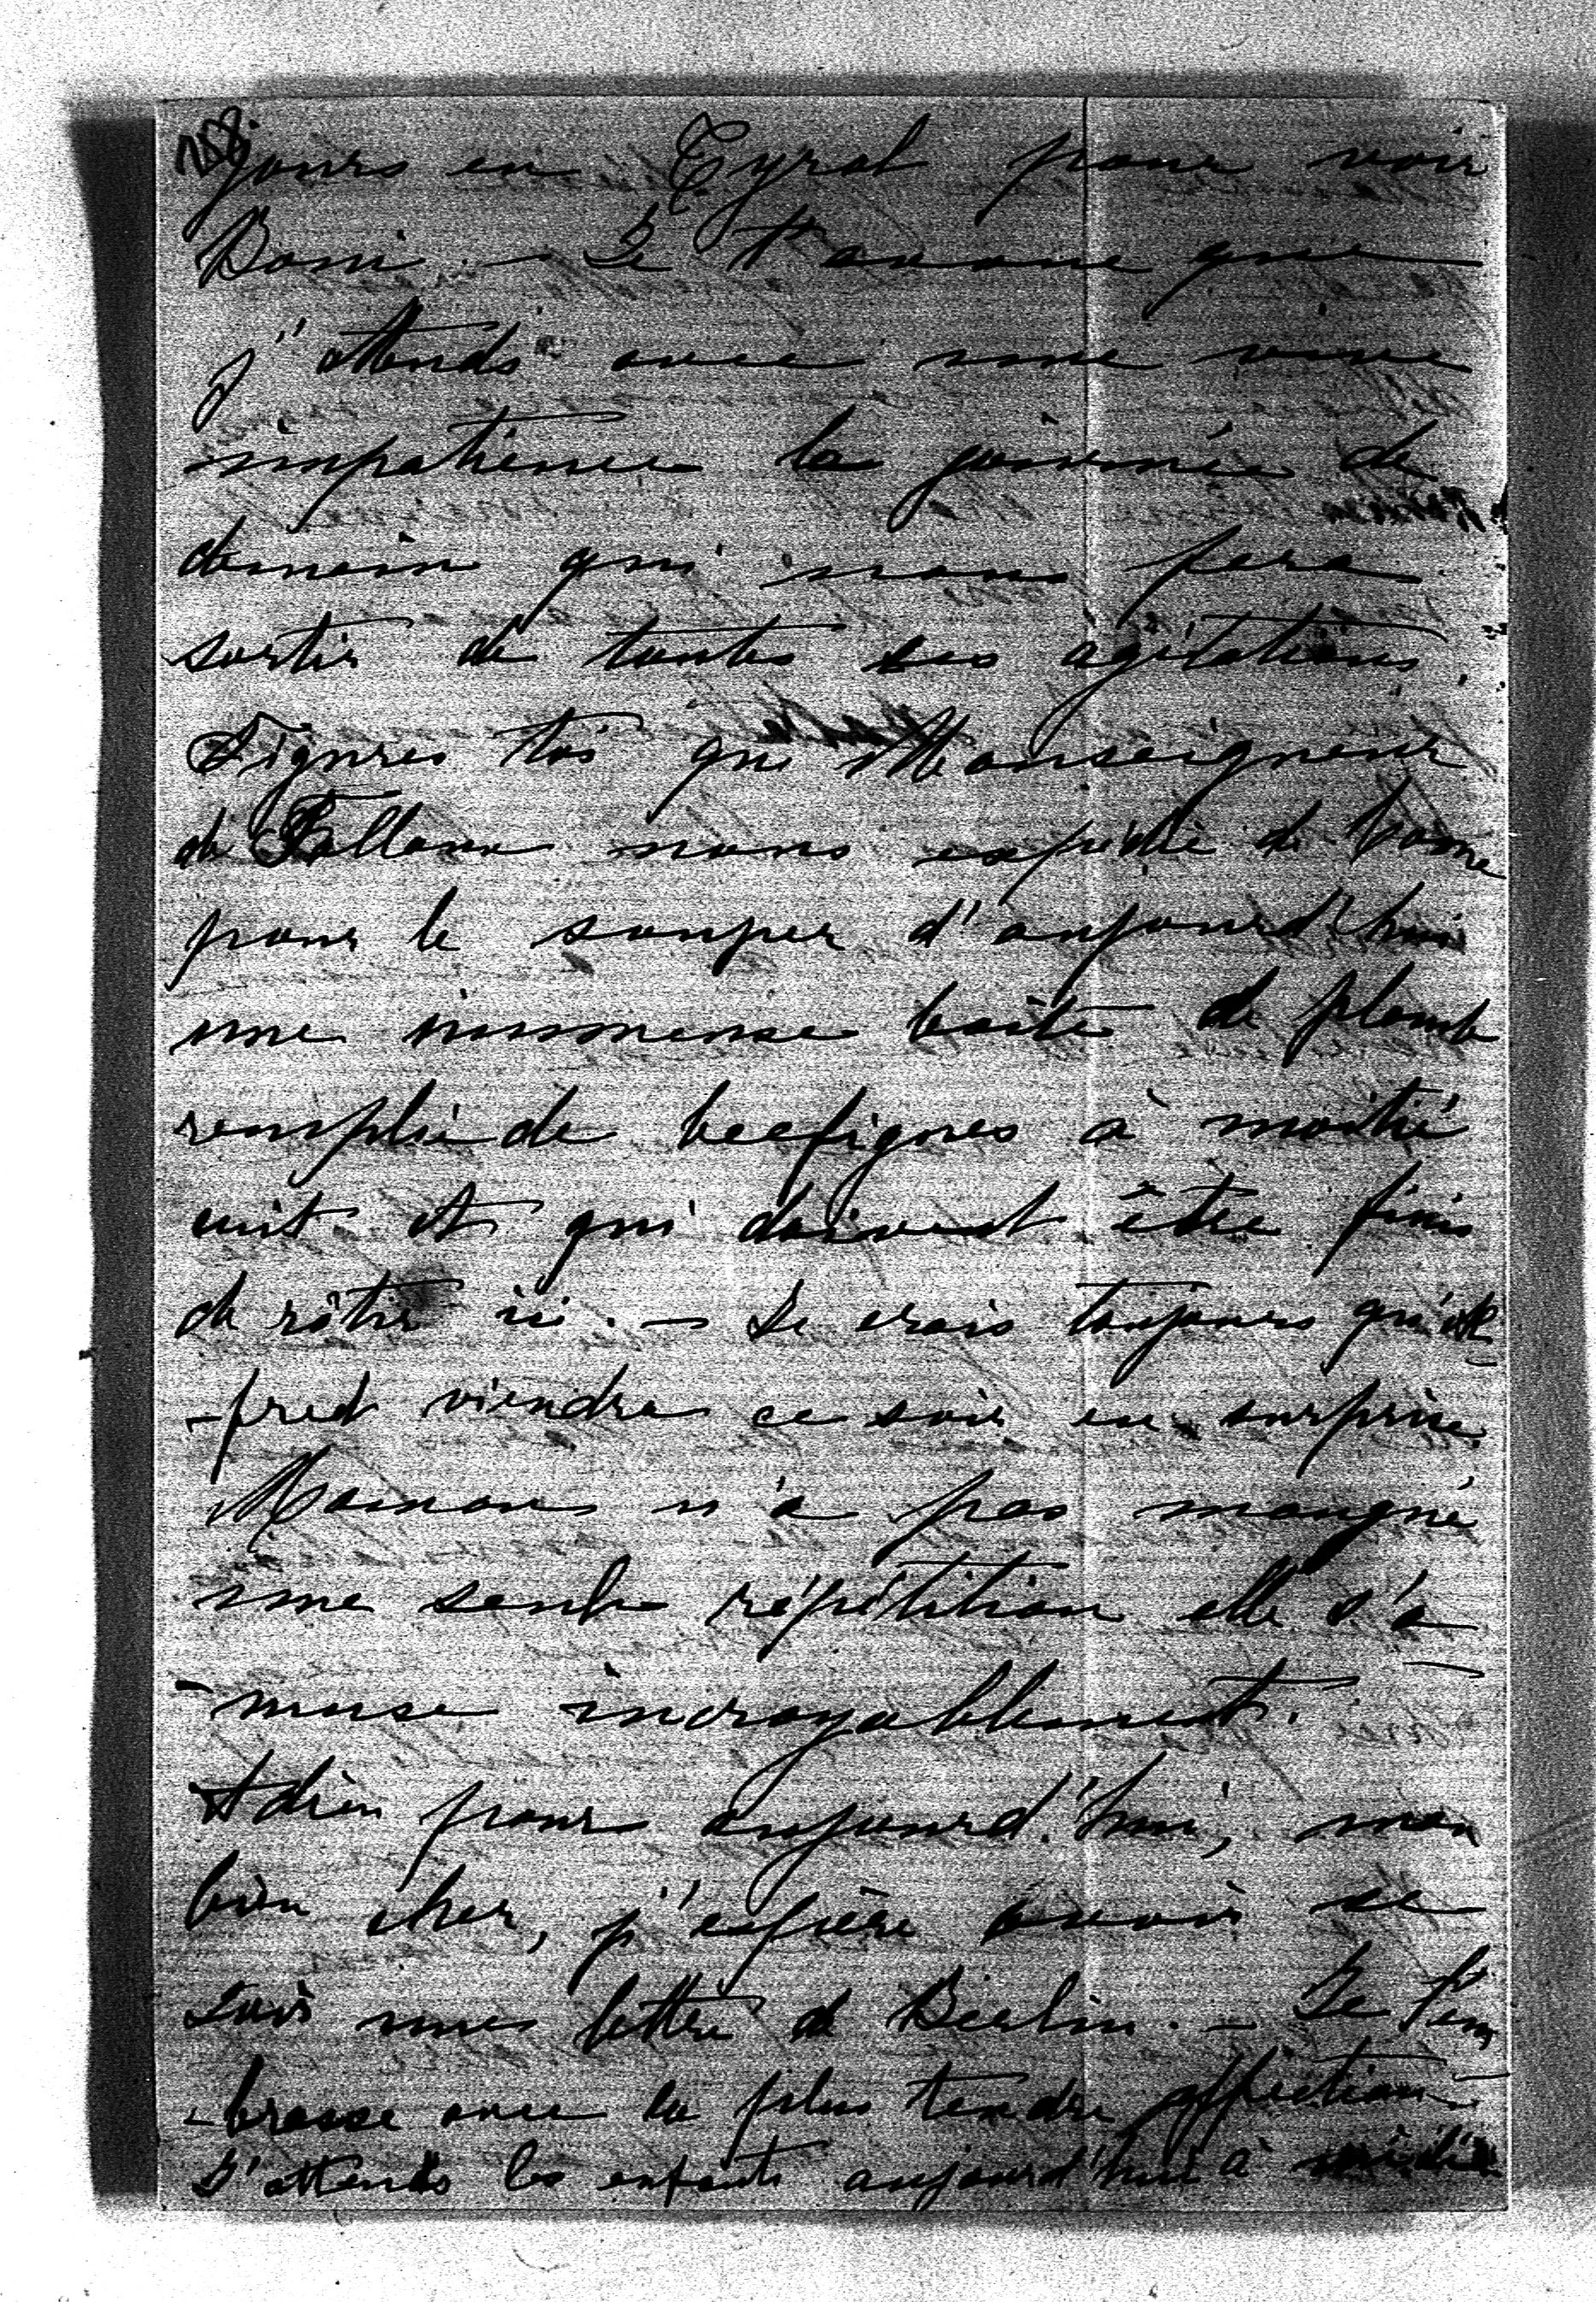 158
jours en Tyrol pour voir
Domi. – Je t'avoue que
j'attends avec une vive
impatience la journée de
demain qui nous fera
sortir de toutes ces agitations.
Figures toi que Monseigneur
de Falloux nous expédie de Rome
pour le souper d'aujourd'hui
une immense boîte de plomb
remplie de becfigues à moitié
cuit et qui doivent être finis
de rôtir ici. – Je crois toujours qu'Al
-fred viendra ce soir en surprise.
Maman n'a pas manqué
une seule répétition elle s'a
-muse incroyablement.
Adieu pour aujourd'hui, mon
bien cher, j'espère avoir ce
soir une lettre de Berlin. – Je t'em
-brasse avec la plus tendre affection
J'attends les enfants aujourd'hui à midi